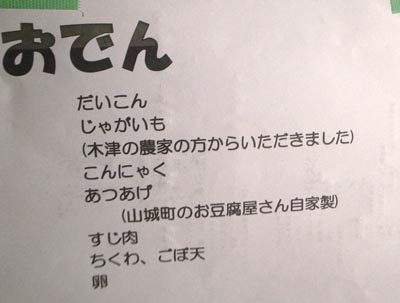 おでん
だいこん
じゃがいも
(木津の農家の方からいただきました)
こんにゃく
あつあげ
(山城町のお豆腐屋さん自家製)
すじ肉
ちくわ、ごぼ天
卵